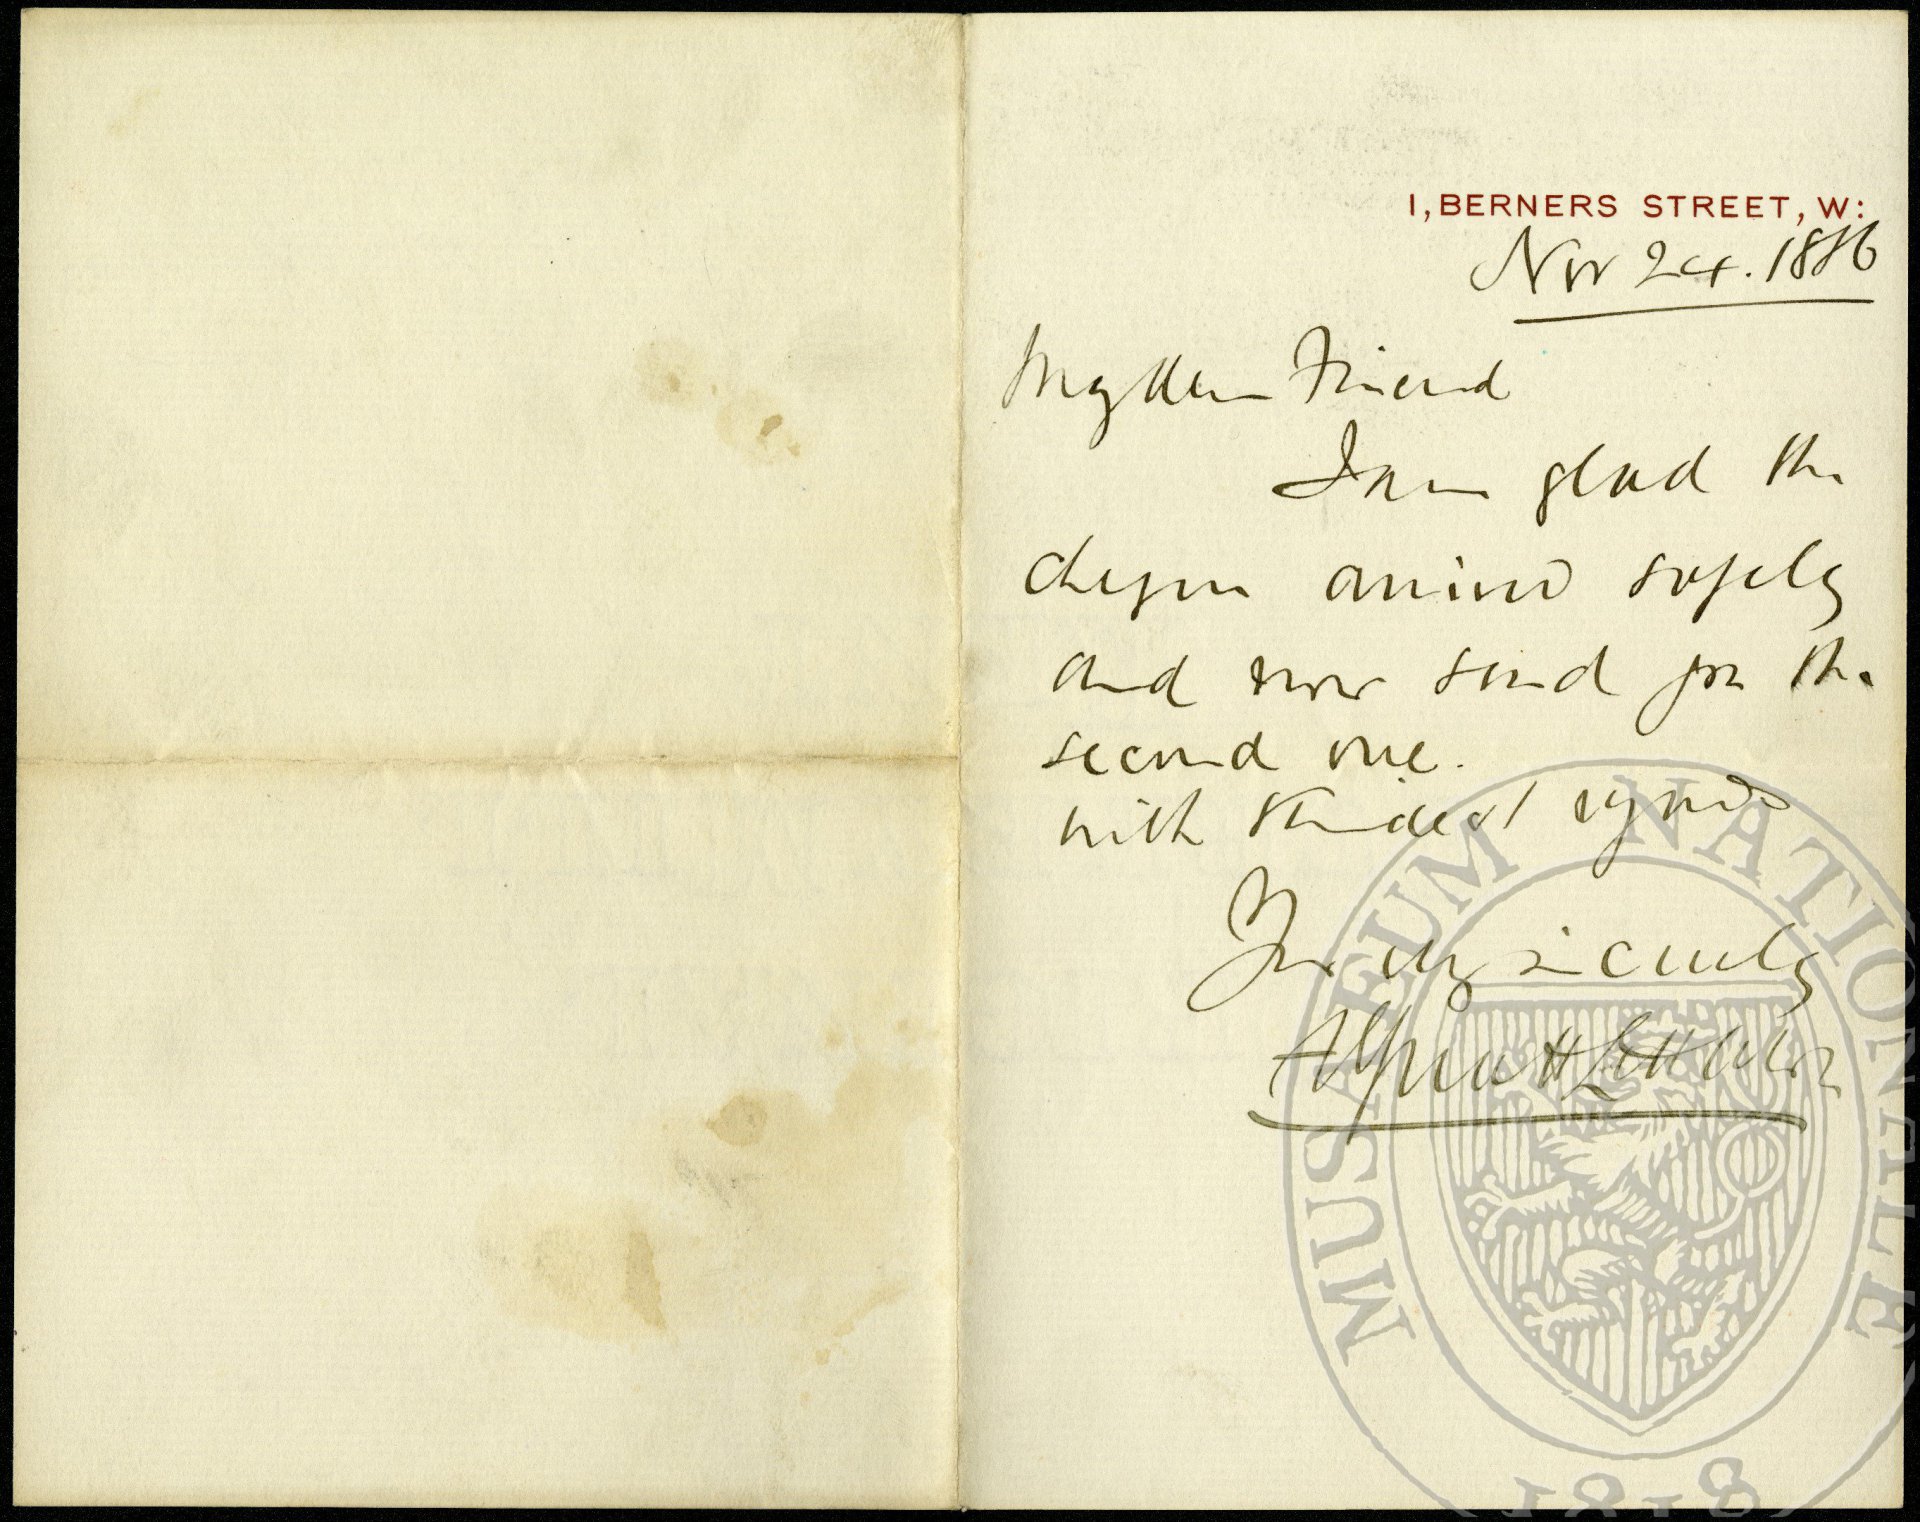 1, BERNERS STREET, W:
Nov 24. 1886
My dear Friend
I am glad the
cheque arrived safely
and now send for the
second one.
with kindest regards
Yrs very sincerely
Alfred H Littleton
MUSAEUM NATIONALE
1818